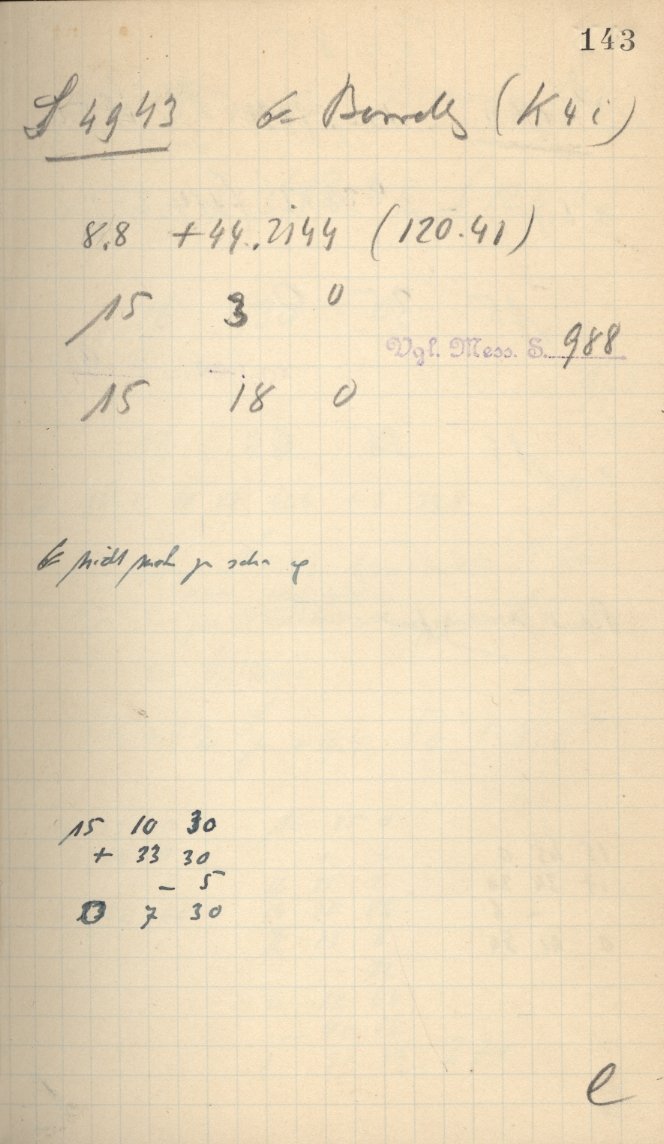 143
4943 Borrelly (K41)
8.8 +44.2144 (120.41)
15 3 0
Vgl. Mess. S. 988
15 18 0
nicht zu sehn
15 10 30
+ 33 30
- 5
7 30
e